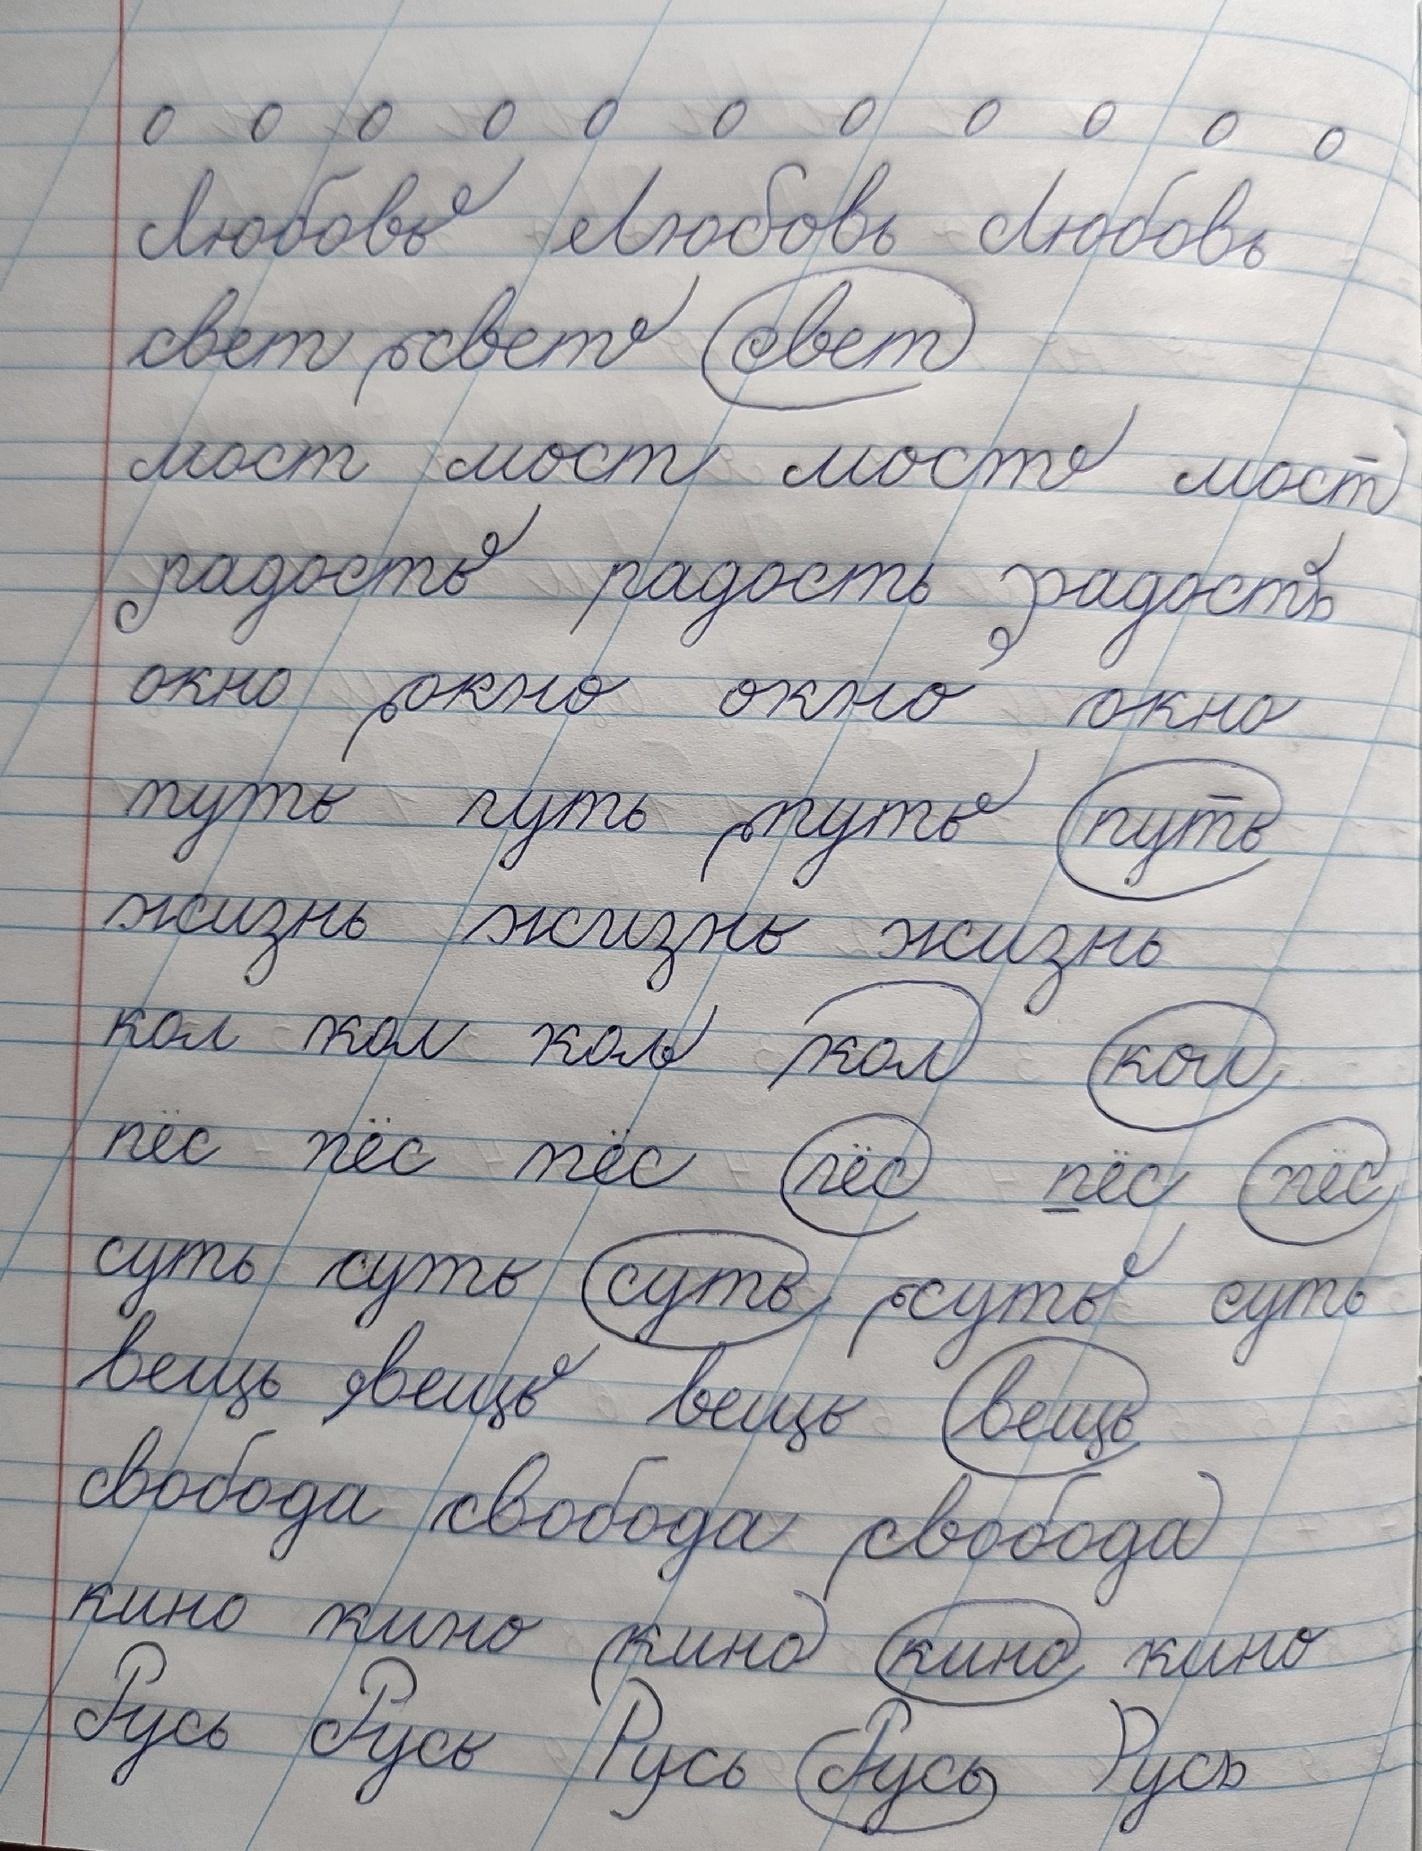 о о о о о о о о о о о
Любовь Любовь Любовь
свет свет свет
мост мост мост мост
радость радость радость
окно окно окно окно
путь путь путь путь
жизнь жизнь жизнь
кол кол кол кол кол
пёс пёс пёс пёс пёс пёс
суть суть суть суть суть
вещь вещь вещь вещь
свобода свобода свобода
кино кино кино кино кино
Русь Русь Русь Русь Русь